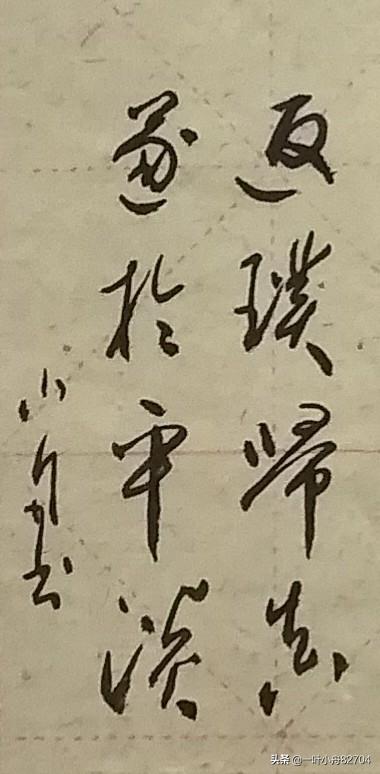 返璞歸真
遂於平淡
小舟书
头条@一叶小舟82704